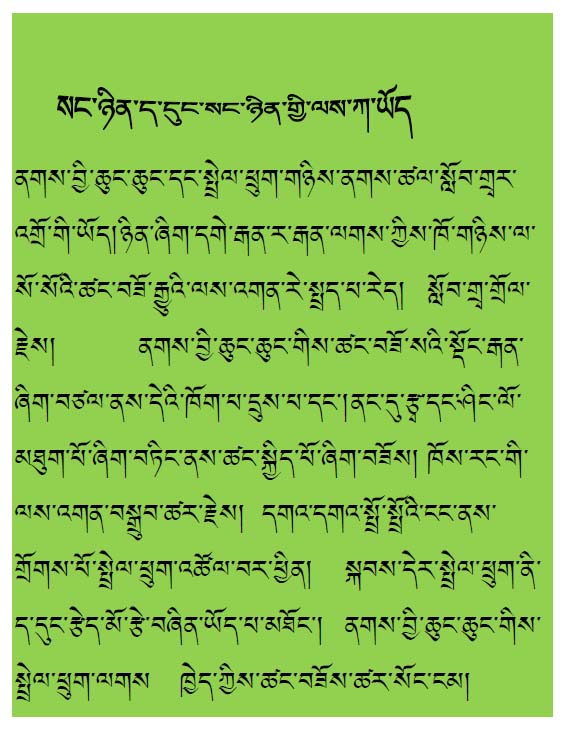 སང་ཉིན་ད་དུང་སང་ཉིན་གྱི་ལས་ཀ་ཡོད
ནགས་བྱི་ཆུང་ཆུང་དང་སྤྲེལ་ཕྲུག་གཉིས་ནགས་ཚལ་སློབ་གྲྭར་
འགྲོ་གི་ཡོད།ཉིན་ཞིག་དགེ་རྒན་ར་རྒན་ལགས་ཀྱིས་ཁོ་གཉིས་ལ་
སོ་སོའི་ཚང་བཟོ་རྒྱུའི་ལས་འགན་རེ་སྤྲད་པ་རེད། སློབ་གྲྭ་གྲོལ་
རྗེས། ནགས་བྱི་ཆུང་ཆུང་གིས་ཚང་བཟོ་སའི་སྡོང་རྒན་
ཞིག་བཙལ་ནས་དེའི་ཁོག་པ་དྲུས་པ་དང་།ནང་དུ་རྩྭ་དང་ཤིང་ལོ་
མཐུག་པོ་ཞིག་བཏིང་ནས་ཚང་སྐྱིད་པོ་ཞིག་བཟོས། ཁོས་རང་གི་
ལས་འགན་བསྒྲུབ་ཚར་རྗེས། དགའ་དགའ་སྤྲོ་སྤྲོའི་ངང་ནས་
གྲོགས་པོ་སྤྲེལ་ཕྲུག་འཚོལ་བར་ཕྱིན། སྐབས་དེར་སྤྲེལ་ཕྲུག་ནི་
ད་དུང་རྩེད་མོ་རྩེ་བཞིན་ཡོད་པ་མཐོང་། ནགས་བྱི་ཆུང་ཆུང་གིས་
སྤྲེལ་ཕྲུག་ལགས ཁྱེད་ཀྱིས་ཚང་བཟོས་ཚར་སོང་ངམ།